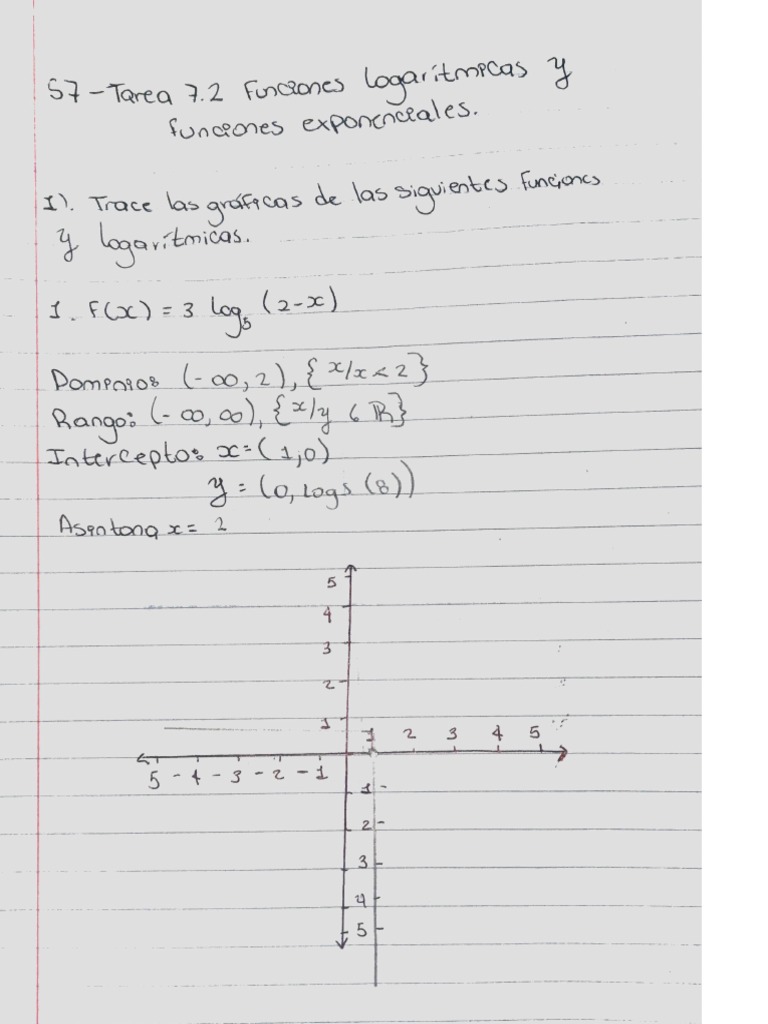 S7 - Tarea 7.2 Funciones logarítmicas y
funciones exponenciales.
I). Trace las gráficas de las siguientes funciones
y logarítmicas.
1. F(x) = 3 log₅ (2-x)
Dominios (-∞, 2), {x/x < 2}
Rango: (-∞, ∞), {x/y ∈ ℝ}
Intercepto: x = (1,0)
y = (0, log5 (8))
Asintona x = 2
5
4
3
2
1
1 2 3 4 5
5 - 4 - 3 - 2 - 1
1 -
2 -
3
4
5